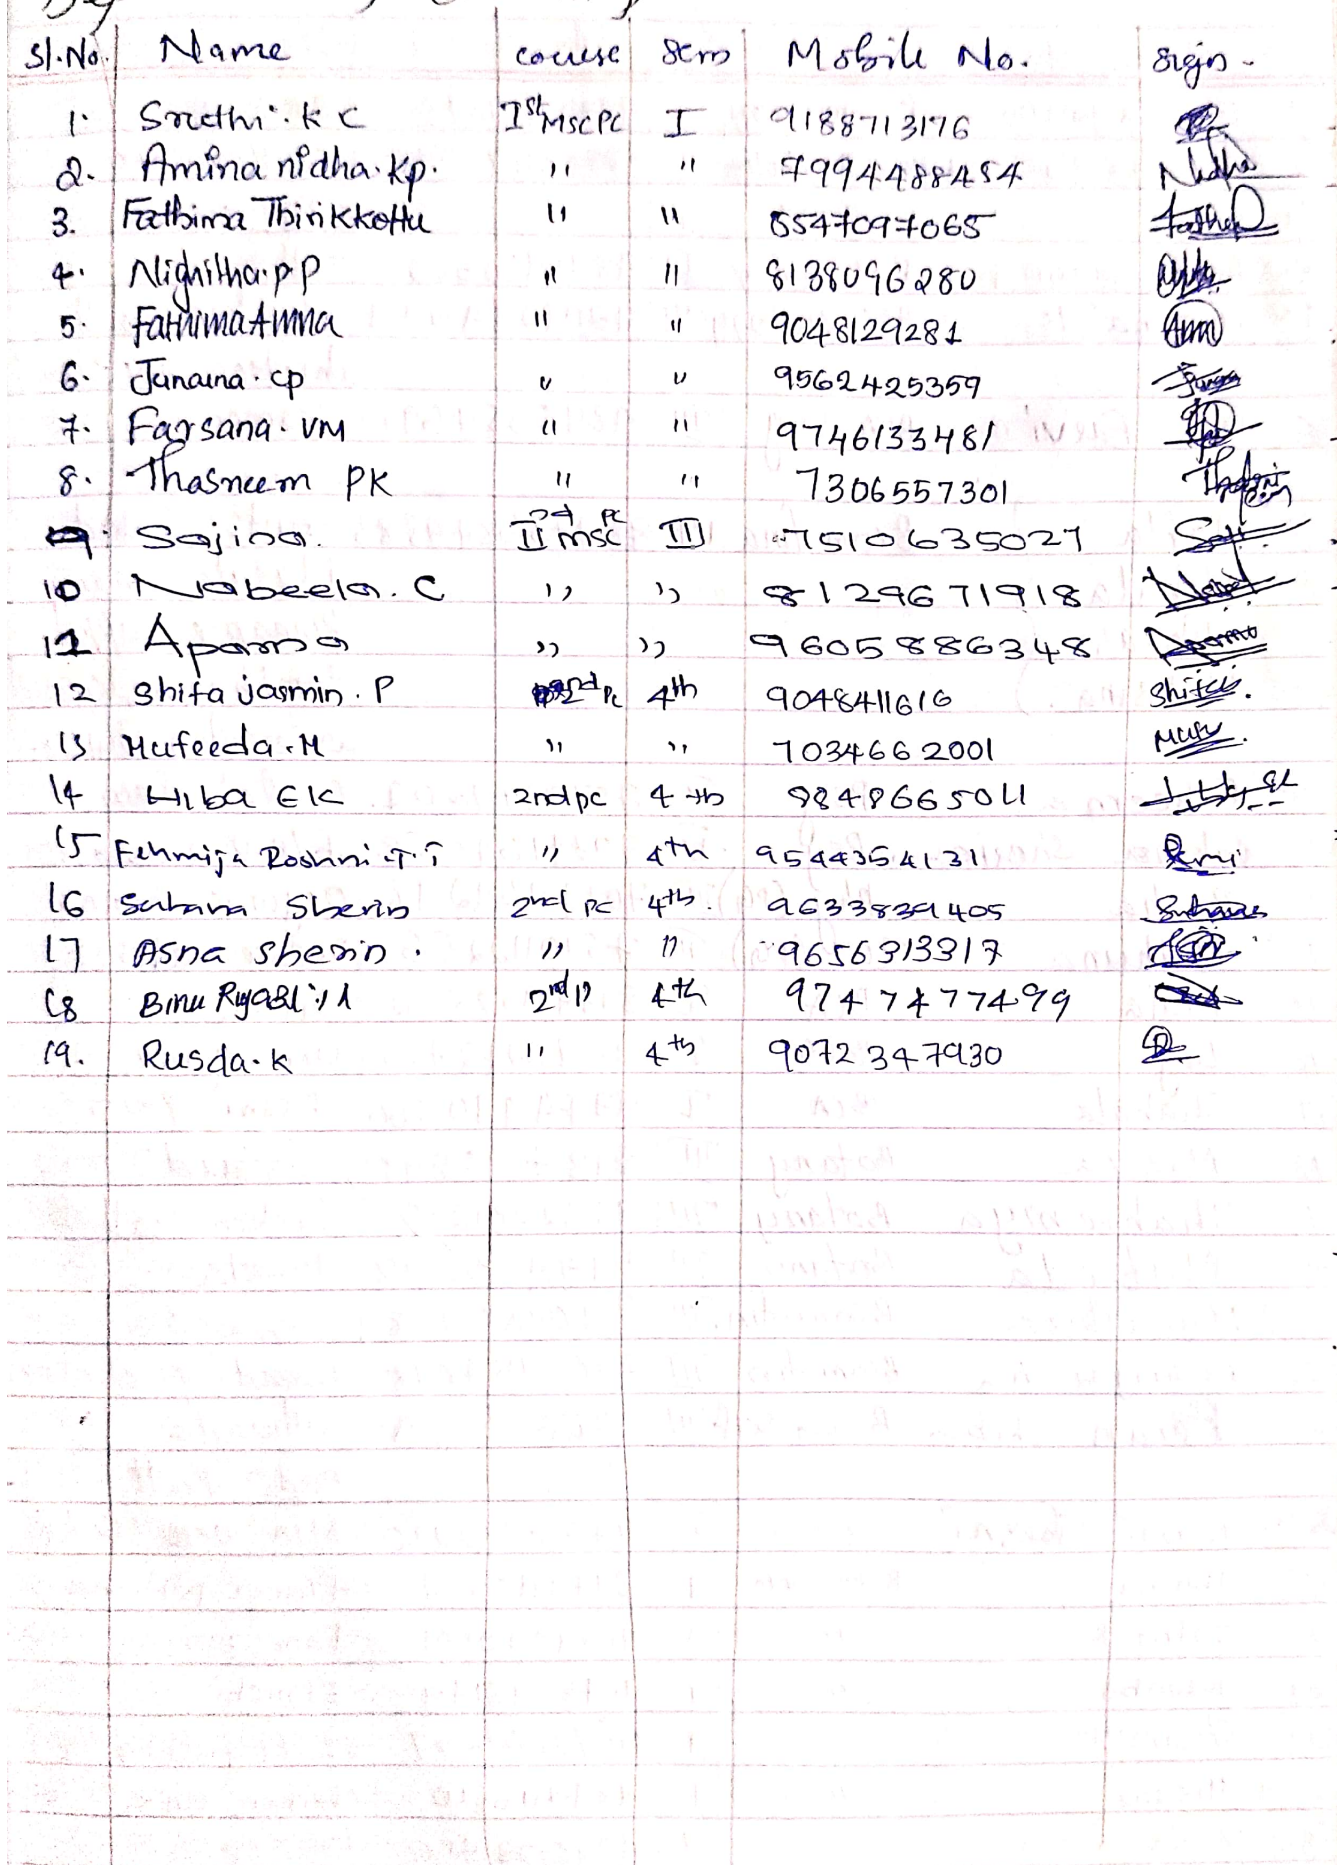 Sl.No. Name course sem Mobile No. sign
1. Sruthi. k c Ist MSC PC I 9188713176
2. Amina nidha. kp. " " 7994488454 Nidha
3. Fathima Thirikkottu " " 8547097065
4. Nighitha. p p " " 8138096280
5. Fathima Amna " " 9048129281
6. Junaina. cp " " 9562425359
7. Farsana. VM " " 9746133481
8. Thasneem PK " " 7306557301
9. Sajina. II nd msc pc III 7510635027
10 Nabeela. C " " 8129671918
11 Aparna " " 9605886348 Aparna
12 Shifa jasmin. P 2nd Pc 4th 9048411616 Shifa.
13 Mufeeda. M " " 7034662001 Mufu.
14 Hiba EK 2nd pc 4th 9848665011
15 Fehmija Roshni. T. T " 4th 9544354131
16 Suhana Sherin 2nd pc 4th. 9633839405 Suhana
17 Asna sherin. " " 9656313317
18 Binu 2nd 4th 9747477499
19. Rusda. k " 4th 9072347930